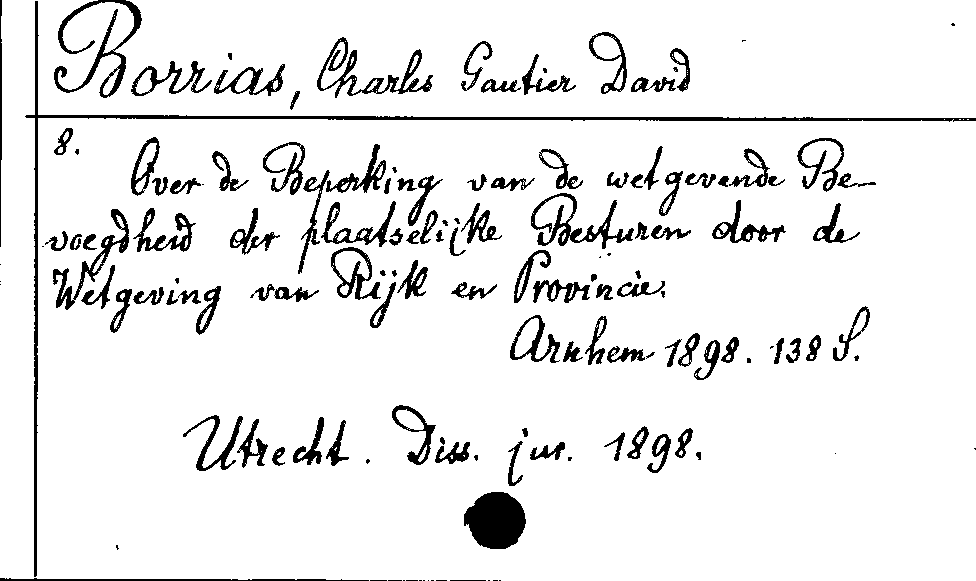 Borrias, Charles Gautier David
8.
Over de Beperking van de wetgevende Be-
voegdheid der plaatselijke Besturen door de
Wetgeving van Rijk en Provincie.
Arnhem 1898. 138 S.
Utrecht. Diss. jur. 1898.